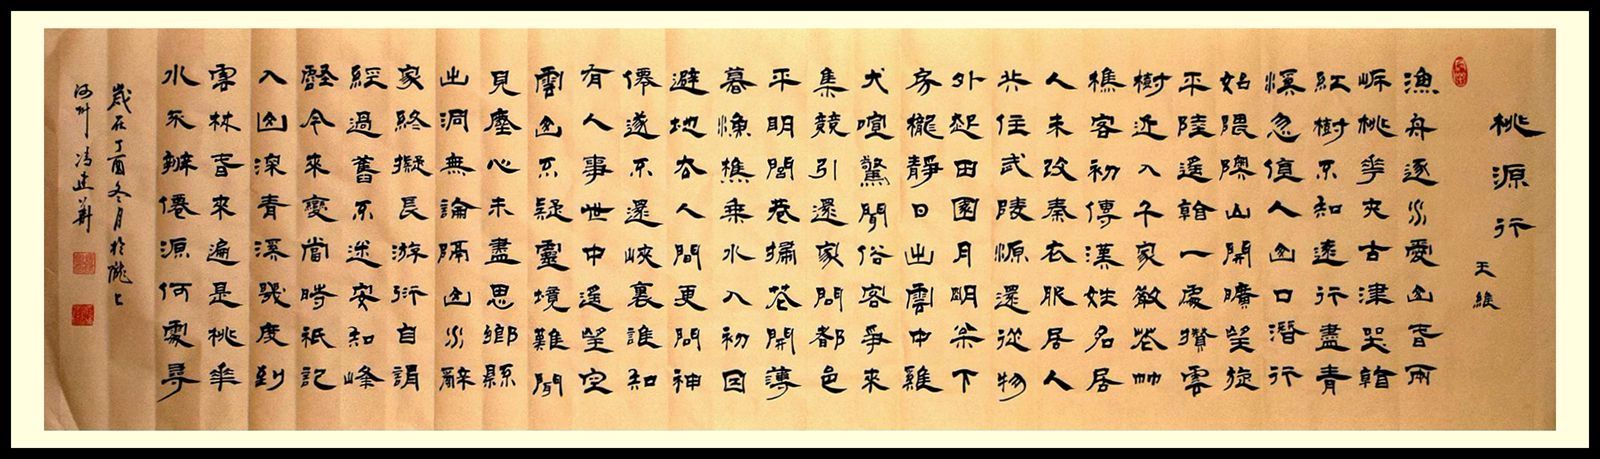 桃源行
王維
漁舟逐水愛山春兩
岸桃華夾古津坐看
紅樹不知遠行盡青
溪忽值人山口潛行
始隈隩山開曠望旋
平陸遙看一處攢雲
樹近入千家散花竹
樵客初傳漢姓名居
人未改秦衣服居人
共住武陵源還從物
外起田園月明松下
房櫳靜日出雲中雞
犬喧驚聞俗客爭來
集競引還家問都邑
平明閭巷掃花開薄
暮漁樵乘水入初因
避地去人間更問神
僊遂不還峽裏誰知
有人事世中遙望空
雲山不疑靈境難聞
見塵心未盡思鄉縣
出洞無論隔山水辭
家終擬長游衍自謂
經過舊不迷安知峰
壑今來變當時祇記
入山深青溪幾度到
雲林春來遍是桃華
水不辨僊源何處尋
歲在丁酉冬月於隴上
河州